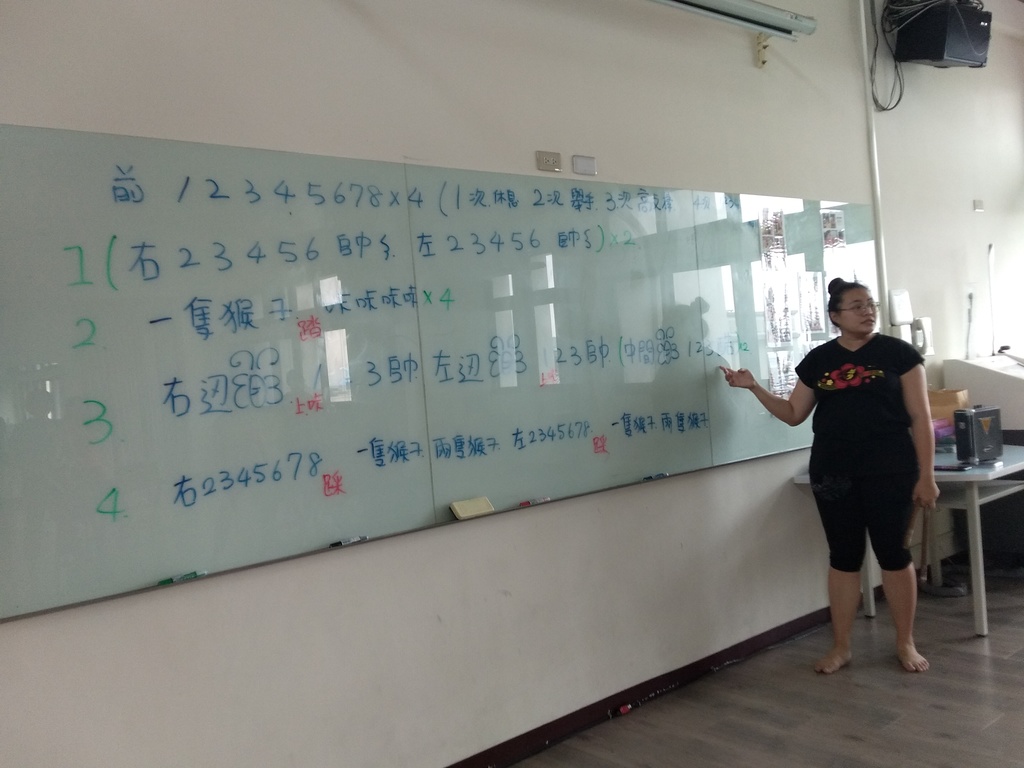 前 1 2 3 4 5 6 7 8 × 4 (1次休息 2次舉手 3次
1 (右 2 3 4 5 6 自帥 左 2 3 4 5 6 帥) × 2
2. 一隻猴子 踏 咪咪咪咪 × 4
3. 右边 上咪 1 2 3 帥 左边 上咪 1 2 3 帥 (中間 1 2 3 × 2
4. 右2345678 踩 一隻猴子 兩隻猴子 左2345678 踩 一隻猴子 兩隻猴子